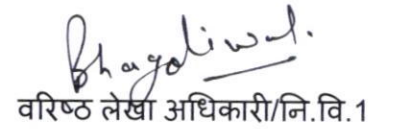 Bhagoliwal.
वरिष्ठ लेखा अधिकारी/नि.वि.1